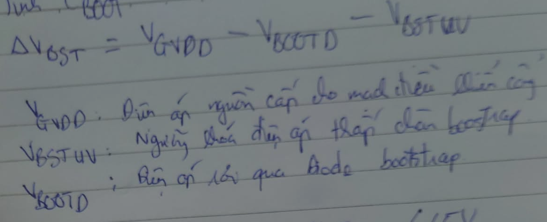 ΔV_BST = V_GVDD - V_BOOTD - V_BSTUV
V_GVDD: Điện áp nguồn cấp cho mạch điều khiển cổng
V_BSTUV: Ngưỡng khóa điện áp thấp chân bootstrap
V_BOOTD: Điện áp rơi qua Diode bootstrap